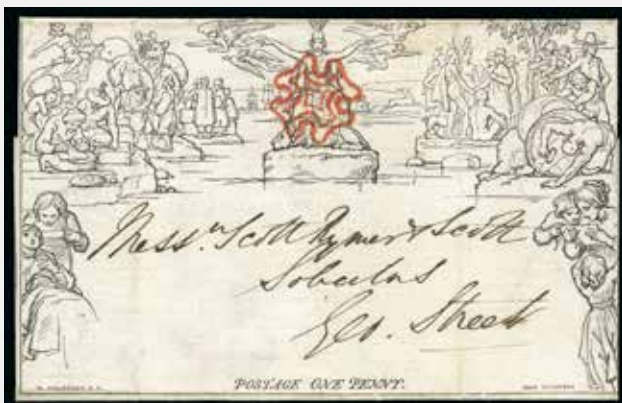 Mess.rs Scott Rymer & Scott
Solicitors
Geo. Street
POSTAGE ONE PENNY.
W. MULREADY, R.A.